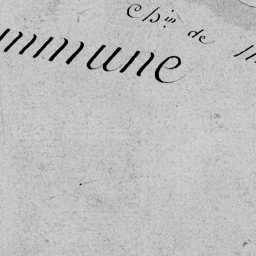 Ch.in de
mmune